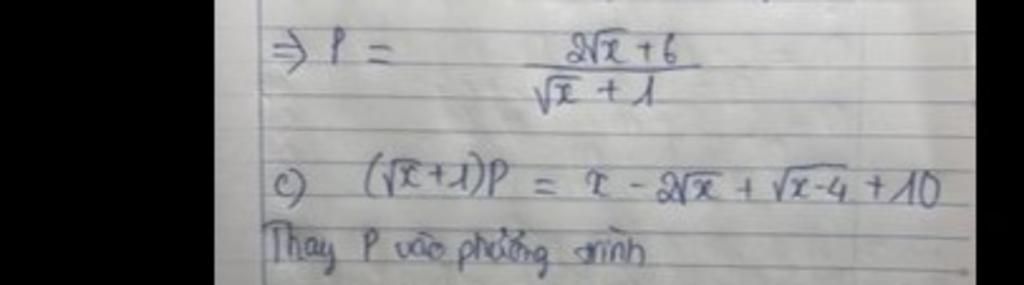 ⇒ P = (2√x + 6)/(√x + 1)
c) (√x+1)P = x - 2√x + √(x-4) + 10
Thay P vào phương trình